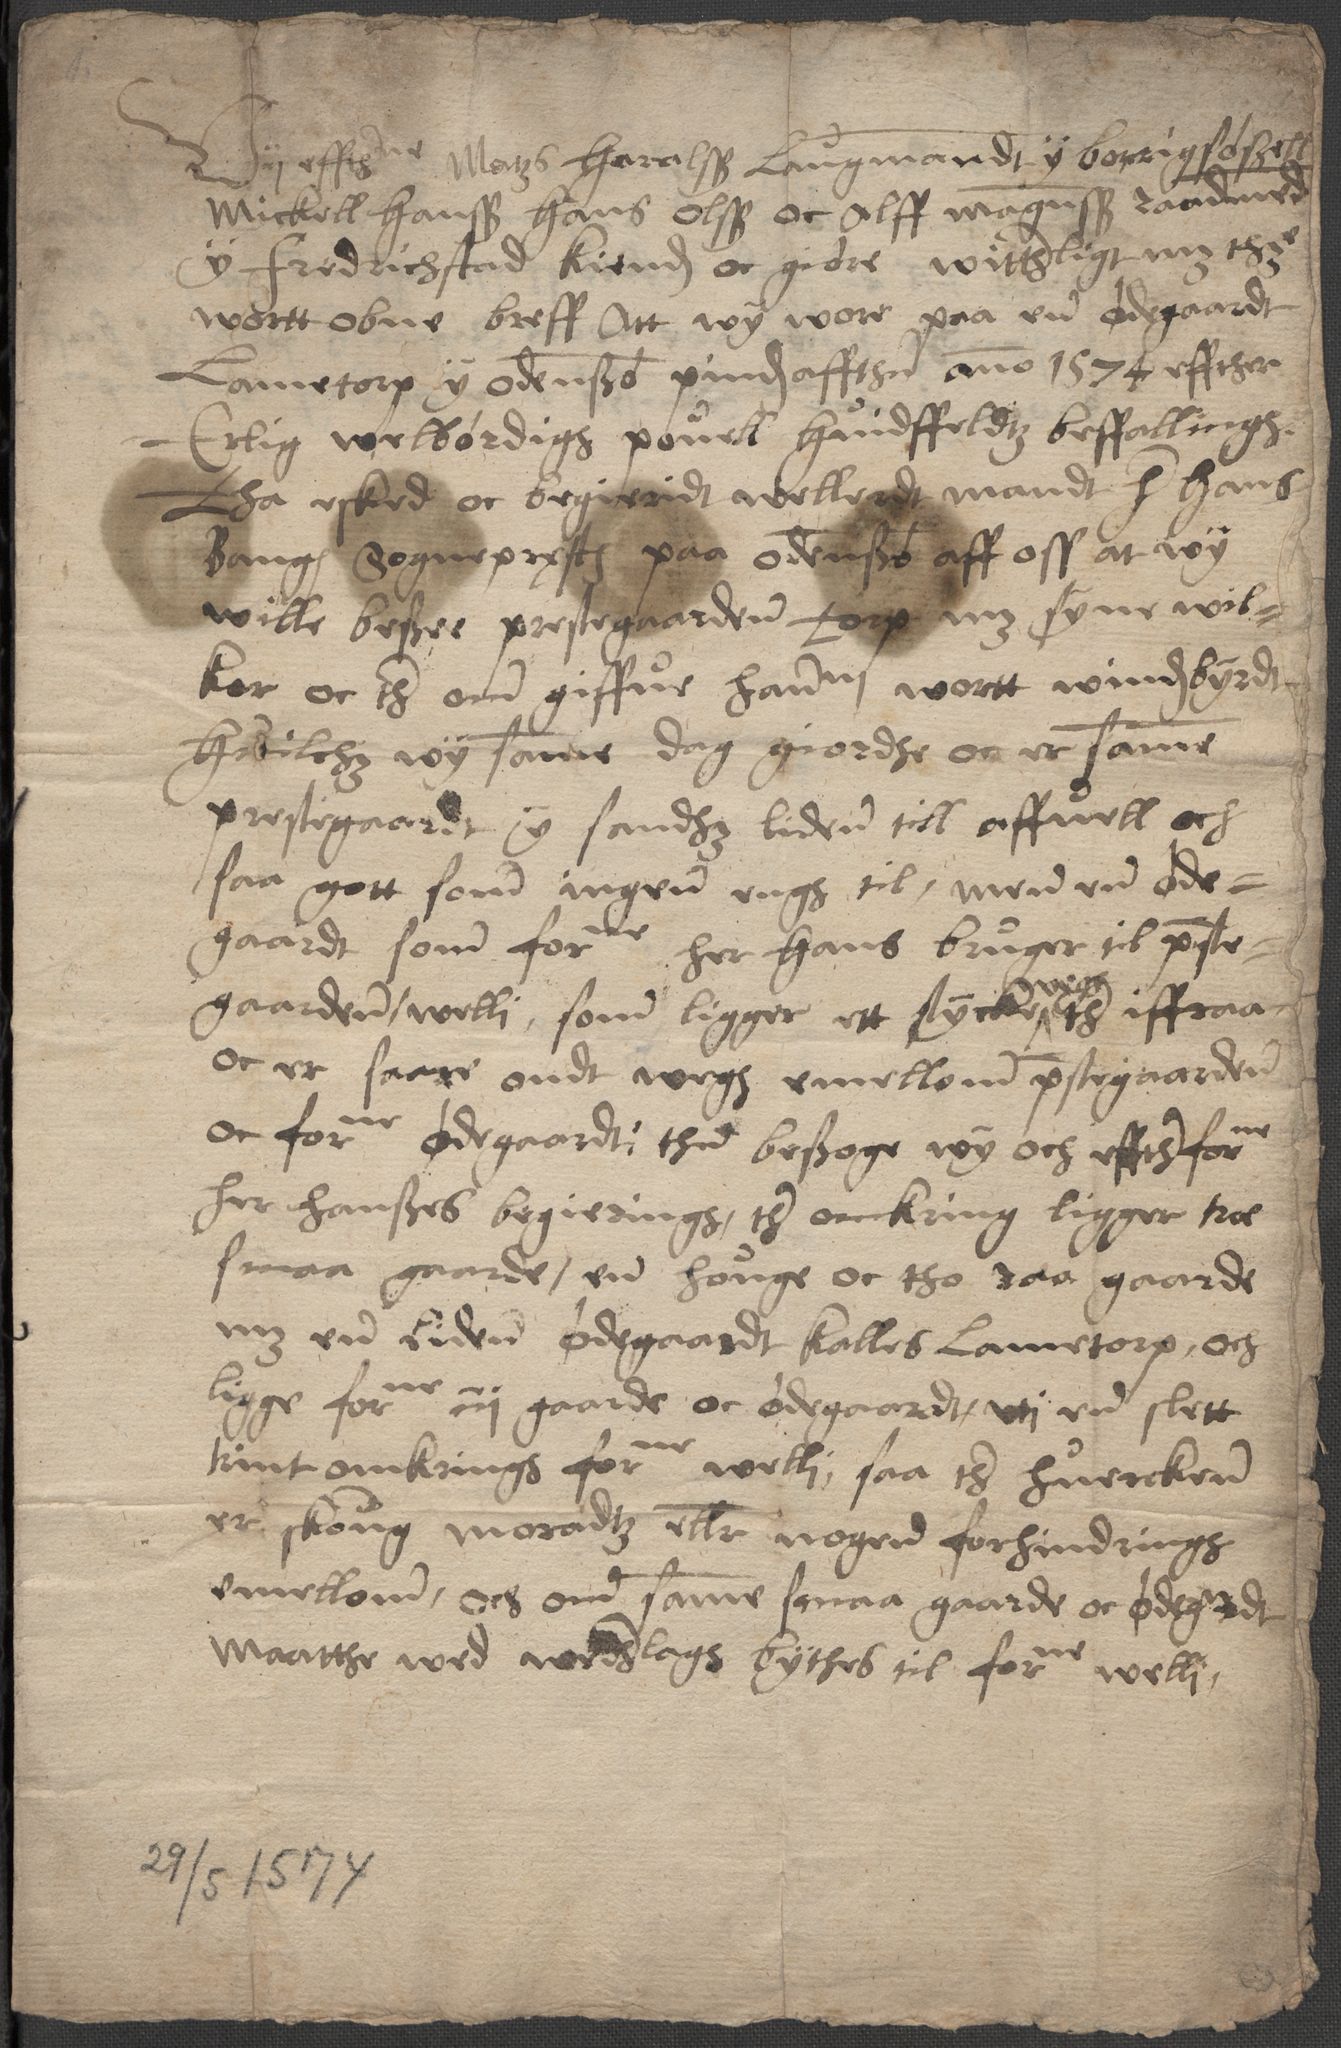 Wij effthne Matzs Haralss Laugmandt ÿ borrigsøßell
Mickell Hanss Hans Olss oc Alff Magnuss raadmend
ÿ Fredrichstad kiend oc giøre witthligt mz thze
wortt obne breff Att wÿ wore paa enn ødegaardt
Lametorp ÿ odenssø pindzaffthn anno 1574 effther
Erlig welbördigs pouell huidffeldtz beffallings
Tha esked oc begieridt wellerdt mandt h hans
Bang sogneprest paa odenssø aff oss at wÿ
wille besee prestegaarden torp mz syne wil=
kor oc ther om giffue hannum wortt windzbÿrdt
huilchz wÿ same dag giordhe oc er same
prestegaardt ÿ sandhz liden till affuell och
saa gott som ingen engs til, men en øde=
gaardt som forne her Hans bruger til pste=
gaarden, welli, som ligger ett stÿcke wegs ther iffraa
oc er saare ondt wegs emellom pstegaarden
oc forne ødegaardt, thn besoge wÿ och effther forne
her hanses begierings, ther omkring ligger tre
smaa gaarde, en houge oc tho raa gaarde
mz en liden ødegaardt kalles Lametorp, och
ligge forne iij gaarde oc ødegaardt, vti en slett
trint omkrings forne welli, saa ther huercken
er skoug moradtz eller nogen forhindrings
emellom, och om same smaa gaarde oc ødegrdt
maatthe wed wederlags bÿthes til forne welli,
29/5 1574